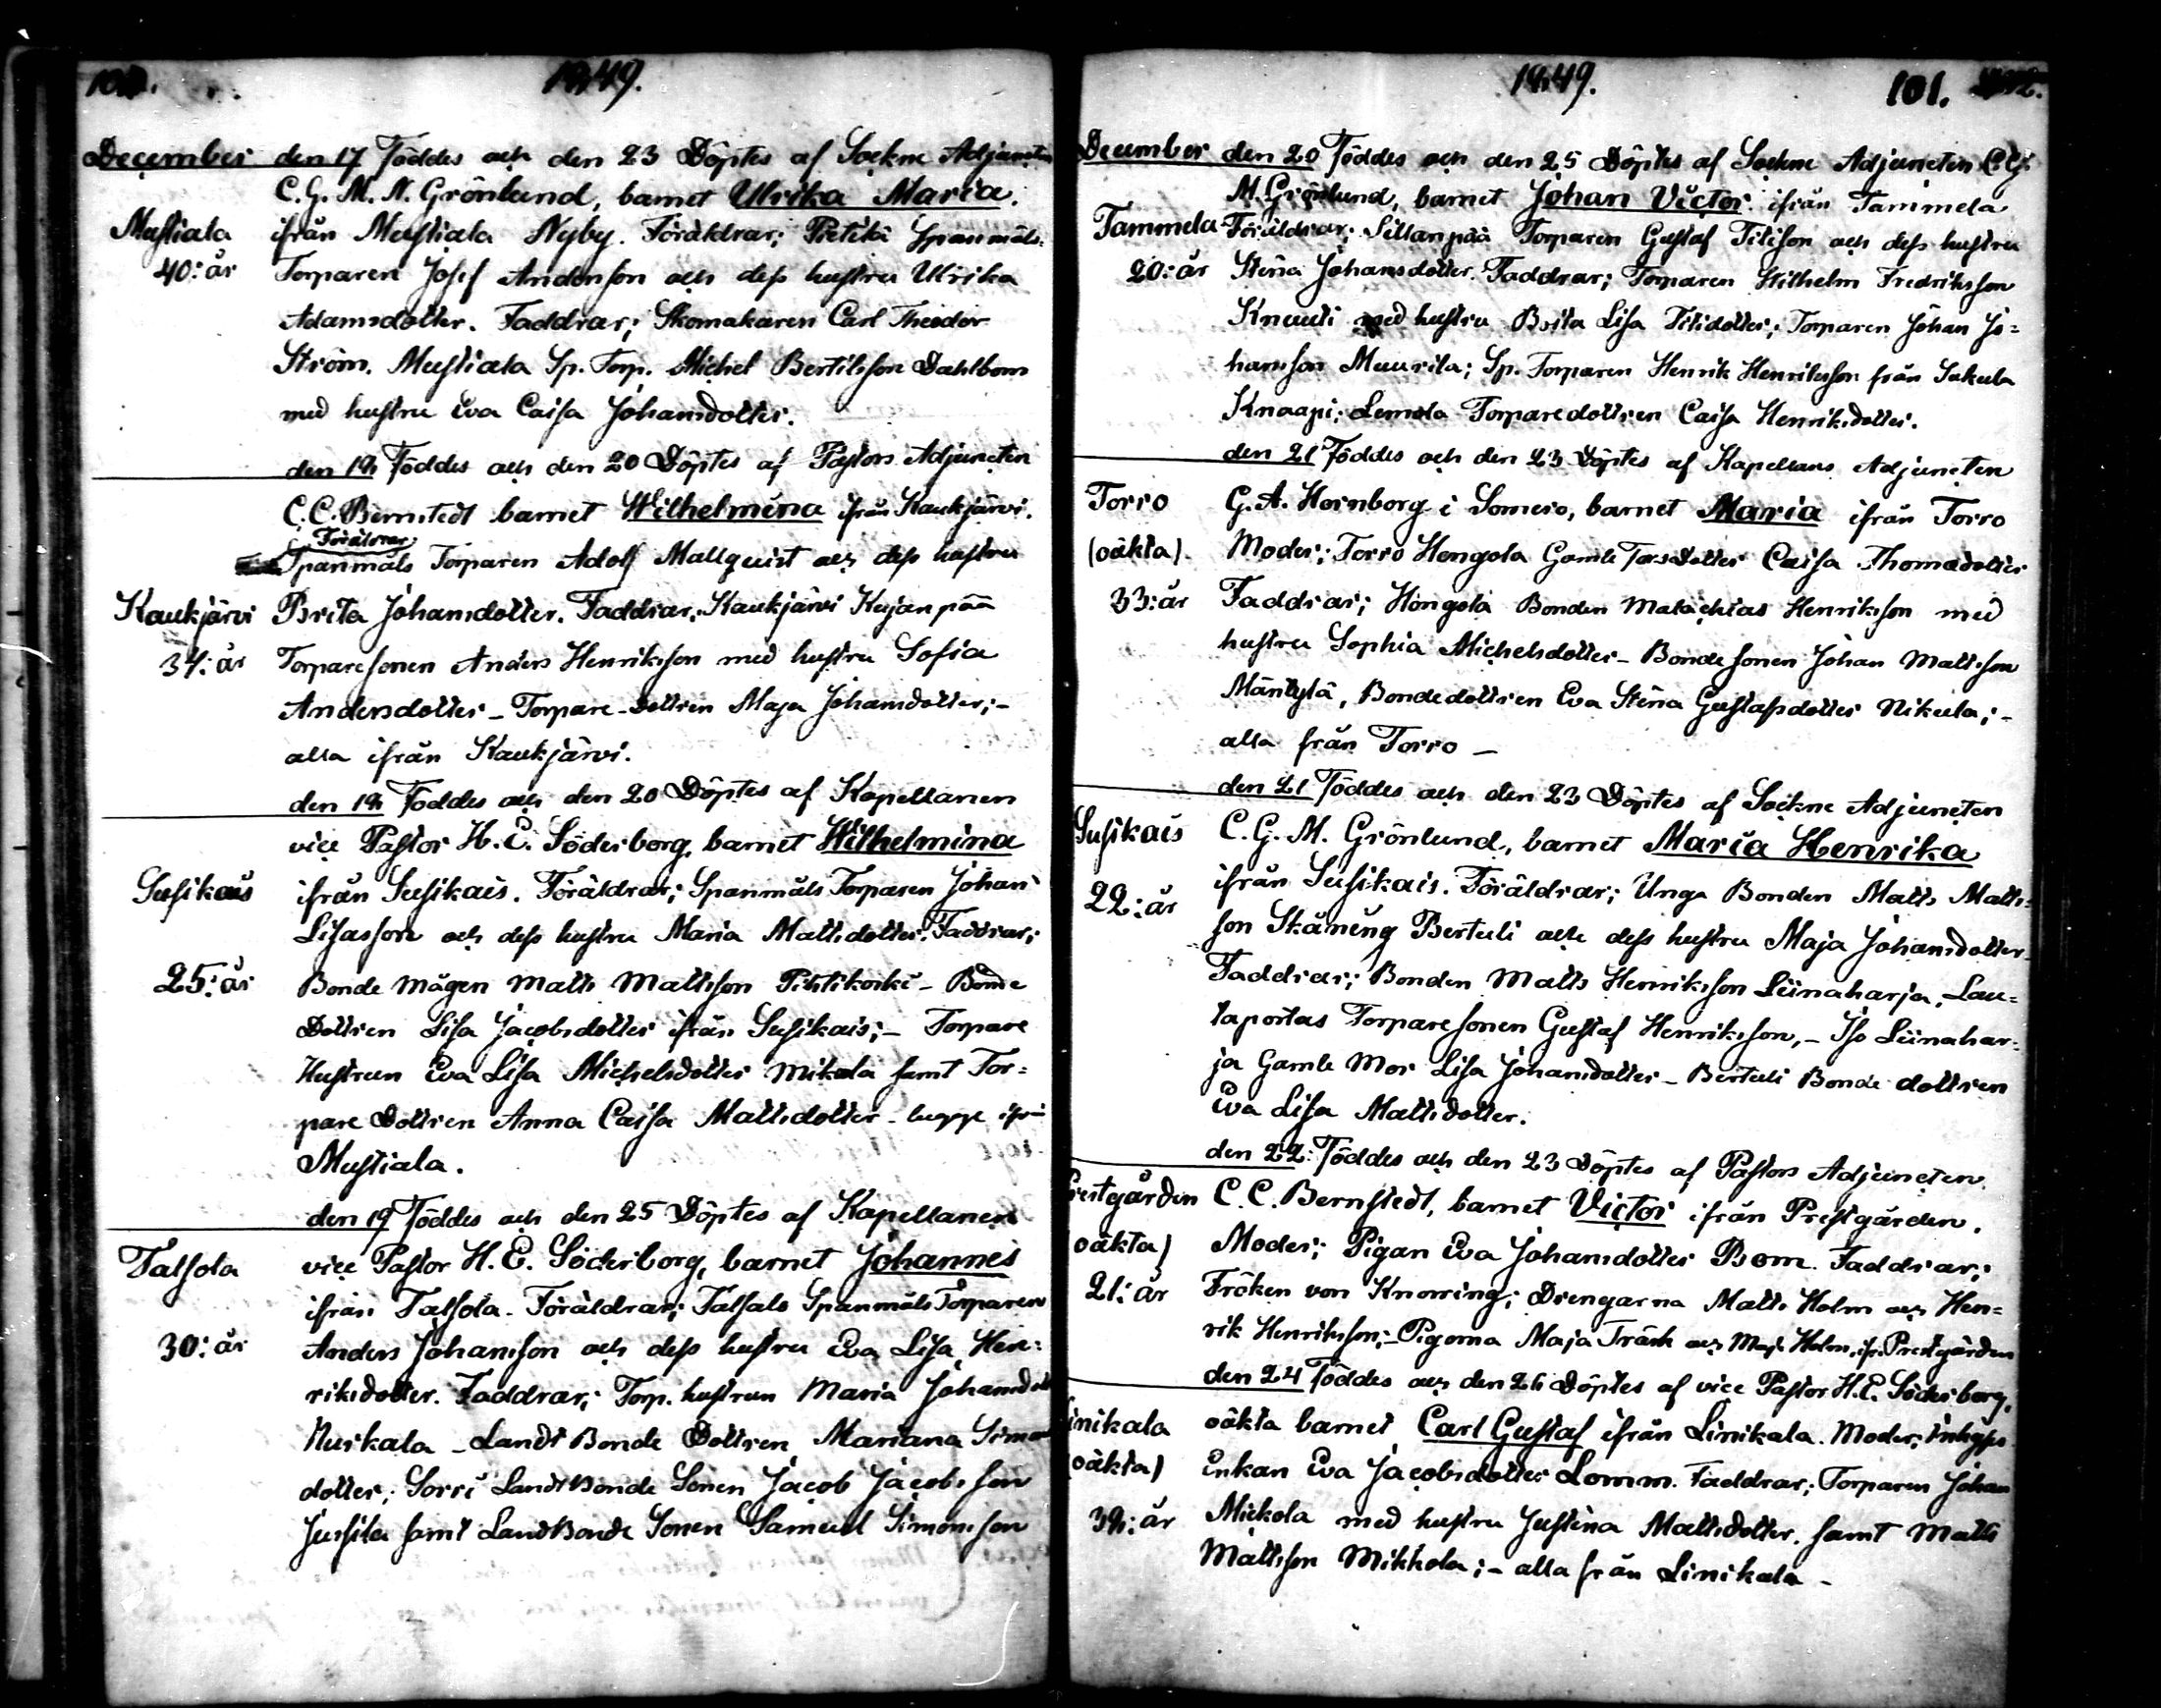 1849.
December den 17 Föddes och den 23 Döptes af Sockne Adjuncten
C. G. M. N. Grönlund, barnet Ulrika Maria.
Mustiala ifrån Mustiala Nyby. Föräldrar; Pietilä Spanmåls-
40: år Torparen Josef Andersson och dess hustru Ulrika
Adamsdotter. Faddrar; Skomakaren Carl Theodor
Ström. Mustiala Sp. Torp. Michel Bertilsson Dahlbom
med hustru Eva Caisa Johansdotter.
den 18 Föddes och den 20 Döptes af Pastors Adjuncten
C. C. Bernstedt barnet Wilhelmina ifrån Kaukjärvi.
Föräldrar
Spanmåls Torparen Adolf Mallquist och dess hustru
Kaukjärvi Brita Johansdotter. Faddrar; Kaukjärvi Kujanpää
34: år Torparesonen Anders Henriksson med hustru Sofia
Andersdotter – Torpare-dottren Maja Johansdotter; –
alla ifrån Kaukjärvi.
den 18 Föddes och den 20 Döptes af Kapellanen
vice Pastor H. E. Söderborg, barnet Wilhelmina
Susikais ifrån Susikais. Föräldrar; Spanmåls Torparen Johan
Lisasson och dess hustru Maria Mattsdotter. Faddrar;
25: år Bonde mågen Matts Mattsson Pihtikoski – Bonde
Dottren Lisa Jacobsdotter ifrån Susikais; – Torpare
Hustrun Eva Lisa Michelsdotter Mikola samt Tor=
pare Dottren Anna Caisa Mattsdotter – begge ifrån
Mustiala.
den 19 Föddes och den 25 Döptes af Kapellanen
Talsola vice Pastor H. E. Söderborg, barnet Johannes
ifrån Talsola. Föräldrar; Talsola Spanmåls Torparen
30: år Anders Johansson och dess hustru Eva Lisa Hen=
riksdotter. Faddrar; Torp. hustrun Maria Johansdott
Nurkala – Landt Bonde Dottren Mariana Simons
dotter; Sorri Landt Bonde Sonen Jacob Jacobsson
Jussila samt Landt Bonde Sonen Samuel Simonsson
1849. 101.
December den 20 Föddes och den 25 Döptes af Sockne Adjuncten C. G.
M. Grönlund, barnet Johan Victor ifrån Tammela
Tammela Föräldrar; Sillanpää Torparen Gustaf Titisson och dess hustru
20: år Stina Johansdotter. Faddrar; Torparen Wilhelm Fredriksson
Knuuti med hustru Brita Lisa Titidotter; Torparen Johan Jo=
hansson Muurila; Sp. Torparen Henrik Henriksson från Sukula
Knaapi; Lemola Torparedottren Caisa Henriksdotter.
den 21 Föddes och den 23 Döptes af Kapellans Adjuncten
Torro G. A. Hornborg i Somero, barnet Maria ifrån Torro
(oäkta). Moder; Torro Hongola Gamle Torsdotter Caisa Thomasdotter
33: år Faddrar; Hongola Bonden Malachias Henriksson med
hustru Sophia Michelsdotter – Bondesonen Johan Mattsson
Mäntylä, Bondedottren Eva Stina Gustafsdotter Nikula; –
alla från Torro –
den 21 Föddes och den 23 Döptes af Sockne Adjuncten
Susikais C. G. M. Grönlund, barnet Maria Henrika
22: år ifrån Susikais. Föräldrar; Unga Bonden Matts Matts=
son Skäneng Bertuli och dess hustru Maja Johansdotter
Faddrar; Bonden Matts Henriksson Liinaharja, Lau=
taportas Torparesonen Gustaf Henriksson, – Iso Liinahar=
ja Gamle Mor Lisa Johansdotter – Bertuli Bonde dottren
Eva Lisa Mattsdotter.
den 22: Föddes och den 23 Döptes af Pastors Adjuncten
Prestgården C. C. Bernstedt, barnet Victor ifrån Prestgården.
oäkta) Moder; Pigan Eva Johansdotter Bom. Faddrar;
21: år Fröken von Knorring; Drengarna Matts Holm och Hen=
rik Henriksson; – Pigorna Maja Träsk och Maja Holm, ifr. Prestgården
den 24 Föddes och den 26 Döptes af vice Pastor H. E. Söderborg,
inikala oäkta barnet Carl Gustaf ifrån Linikala. Moder; Inhyses
(oäkta) Enkan Eva Jacobsdotter Lomm. Faddrar; Torparen Johan
38: år Mickola med hustru Justina Mattsdotter, samt Matts
Mattsson Mikkola; – alla från Linikala –